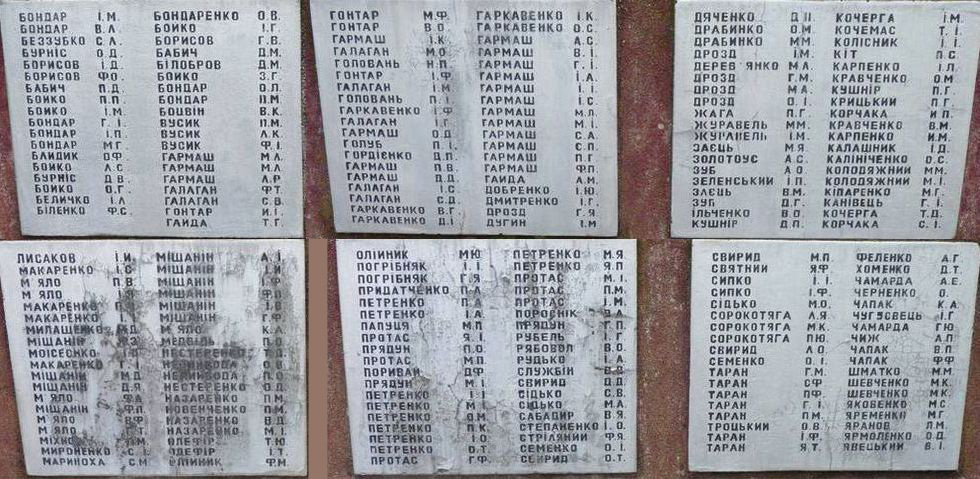 БОНДАР І.М. БОНДАРЕНКО О.В.
БОНДАР В.Л. БОЙКО І.Г.
БЕЗЗУБКО С.Л. БОРИСОВ Г.В.
БУРНІС О.Д. БАБИЧ Д.М.
БОРИСОВ І.Д. БІЛОБРОВ Д.М.
БОРИСОВ Ф.О. БОЙКО З.Г.
БАБИЧ П.Д. БОНДАР О.Л.
БОЙКО П.П. БОНДАР П.М.
БОЙКО І.М. БОЦВІН В.К.
БОНДАР Г.І. ВУСИК П.М.
БОНДАР І.П. ВУСИК Л.К.
БОНДАР М.Г. ВУСИК Ф.І.
БЛИДИК О.Ф. ГАРМАШ М.Л.
БОЙКО Л.С. ГАРМАШ М.Л.
БУРНІС Д.В. ГАРМАШ Л.Р.
БОЙКО О.Г. ГАЛАГАН Ф.Т.
БЕЛИЧКО І.Л. ГАЛАГАН С.В.
БІЛЕНКО Ф.С. ГОНТАР И.І.
ГАЙДА Т.Г.
ГОНТАР М.Ф. ГАРКАВЕНКО І.К.
ГОНТАР В.О. ГАРКАВЕНКО О.С.
ГАРМАШ І.К. ГАРМАШ А.С.
ГАЛАГАН М.О. ГАРМАШ В.І.
ГОЛОВАНЬ Н.П. ГАРМАШ Г.І.
ГОНТАР І.Ф. ГАРМАШ І.А.
ГАЛАГАН І.М. ГАРМАШ І.І.
ГОЛОВАНЬ П.І. ГАРМАШ І.С.
ГАРКАВЕНКО І.Ф. ГАРМАШ М.Л.
ГАЛАГАН І.Г. ГАРМАШ М.І.
ГАРМАШ О.Д. ГАРМАШ С.А.
ГОЛУБ П.І. ГАРМАШ С.П.
ГОРДІЄНКО Д.П. ГАРМАШ П.Г.
ГАРМАШ П.В. ГАРМАШ Ф.П.
ГАРМАШ Г.Д. ГАЙДА А.М.
ГАЛАГАН І.С. ДОБРЕНКО І.Ю.
ГАЛАГАН С.Д. ДМИТРЕНКО І.Г.
ГАРКАВЕНКО В.Г. ДРОЗД Г.Я.
ГАРКАВЕНКО Д.В. ДУГИН І.М
ДЯЧЕНКО Д.П. КОЧЕРГА І.М.
ДРАБИНКО О.М. КОЧЕМАС Т.І.
ДРАБИНКО М.М. КОЛІСНИК І.І.
ДРОЗД І.М. КІТ П.С.
ДЕРЕВ'ЯНКО М.А. КАРПЕНКО І.Л.
ДРОЗД Г.М. КРАВЧЕНКО О.М.
ДРОЗД М.А. КУШНІР П.Г.
ДРОЗД О.І. КРИЦЬКИЙ П.Г.
ЖАГА П.Г. КОРЧАКА И.П.
ЖУРАВЕЛЬ М.М. КРАВЧЕНКО В.М.
ЖУРАВЕЛЬ І.М. КАРПЕНКО И.М.
ЗАЄЦЬ М.Я. КАЛАШНИК І.Д.
ЗОЛОТОУС А.С. КАЛІНІЧЕНКО О.С.
ЗУБ А.О. КОЛОДЯЖНИЙ М.М.
ЗЕЛЕНСЬКИЙ І.П. КОЛОДЯЖНИЙ М.І.
ЗАЄЦЬ В.М. КІПАРЕНКО М.Г.
ЗУБ Д.Г. КАНІВЕЦЬ Г.І.
ІЛЬЧЕНКО В.О. КОЧЕРГА Т.Д.
КУШНІР Д.П. КОРЧАКА С.І.
ЛИСАКОВ І.И. МІЩАНІН А.І.
МАКАРЕНКО І.С. МІЩАНІН І.Й
М'ЯЛО П.В. МІЩАНІН І.Ф
М'ЯЛО І.Я МІЩАНІН Ф.О
МАКАРЕНКО П. МІЩАНІН І.М.
МАКАРЕНКО МІЩАНІН Г.Ф.
МИЛАЩЕНКО М.Д. М'ЯЛО К.А.
МІЩАНІН Я.З. МЕДВІДЬ П.О
МОІСЄЄНКО І.О НЕСТЕРЕНКО Т.Д.
МАКАРЕНКО Г.І. О.В.
МІЩАНІН М.Д. П.О
МІЩАНІН Д.Я НЕСТЕРЕНКО О.Д.
М'ЯЛО Ф.А НАЗАРЕНКО П.М.
МІЩАНІН Ф.Л НОВЕНЧЕНКО П.М.
М'ЯЛО В.Ф НАЗАРЕНКО В.Д.
М'ЯЛО Г.Т НАЗАРЕНКО М.І.
МІХНО П.М. ОЛЕФІР Т.Ю
МИРОНЕНКО С.І. ОЛЕФІР І.Т.
МАРИНОХА С.М. ОЛІЙНИК Ф.М.
ОЛІЙНИК М.Ю. ПЕТРЕНКО М.Я.
ПОГРІБНЯК І.І. ПЕТРЕНКО Я.П
ПОГРІБНЯК Г.Я. ПРОТАС М.І.
ПРИДАТЧЕНКО Г.А ПРОТАС П.М.
ПЕТРЕНКО П.А ПРОТАС І.М.
ПЕТРЕНКО І.А. ПОРОСНІК В.А.
ПАПУЦЯ М.П ПРЯДУН Т.П.
ПРОТАС Я.І. РУБЕЛЬ І.Г.
ПРЯДУН П.О. РЯБОВОЛ В.О.
ПРОТАС М.П. РУДЬКО І.А.
ПОРИВАЙ Д.Ф. СЛУЖБІН В.В.
ПРЯДУН М.І. СВИРИД Д.Д.
ПЕТРЕНКО Г.І. СІДЬКО С.В.
ПЕТРЕНКО М.І. СІДЬКО М.А.
ПЕТРЕНКО О.М. САБАДИР В.Я.
ПЕТРЕНКО П.К. СТЕПАНЕНКО І.О.
ПЕТРЕНКО О.І. СТРІЛЯНИЙ Ф.Я.
ПЕТРЕНКО О.Т. СЕМЕНКО О.І.
ПРОТАС Г.Ф. СВИРИД О.Т.
СВИРИД М.П. ФЕЛЕНКО А.Г.
СВЯТНИЙ Я.Ф. ХОМЕНКО Д.Т.
СИПКО І.І. ЧАМАРДА А.Е.
СИПКО І.Ф. ЧЕРНЕНКО О.
СІДЬКО М.О. ЧАПАК К.А.
СОРОКОТЯГА Л.Я ЧУГУЄВЕЦЬ І.Г
СОРОКОТЯГА М.К. ЧАМАРДА Г.Ю
СОРОКОТЯГА П.Ю. ЧИЖ А.П
СВИРИД Л.О ЧАПАК В.П
СЕМЕНКО О.І. ЧАПАК Ф.Ф.
ТАРАН Г.М. ШМАТКО М.М.
ТАРАН С.Ф. ШЕВЧЕНКО М.К.
ТАРАН П.Ф. ШЕВЧЕНКО М.К.
ТАРАН Г.І. ЯКОВЕНКО М.С
ТАРАН П.М. ЯРЕМЕНКО М.Г.
ТРОЦЬКИЙ О.В. ЯРАНОВ Л.М.
ТАРАН І.Ф. ЯРМОЛЕНКО О.Д.
ТАРАН Я.Т. ЯВЕЦЬКИЙ В.І.